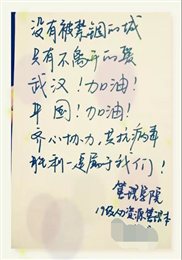 没有被禁锢的城
只有不离开的爱
武汉！加油！
中国！加油！
齐心协力，共抗病毒
胜利一定属于我们！
管理学院
19级人力资源管理本